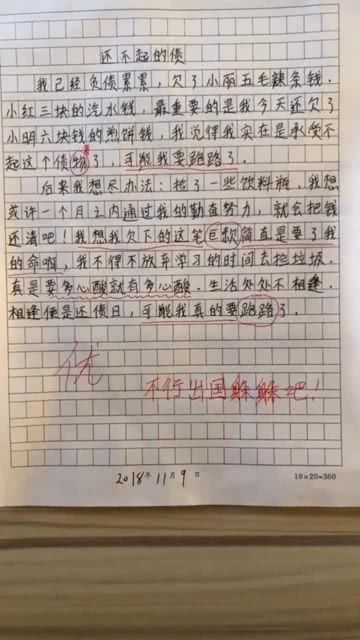 还不起的债
我已经负债累累，欠了小丽五毛辣条钱，
小红三块的汽水钱，最重要的是我今天还欠了
小明六块钱的煎饼钱，我觉得我实在是承受不
起这个债物了，可能我要跑路了。
后来我想尽办法：捡了一些饮料瓶，我想
或许一个月之内通过我的勤奋努力，就会把钱
还清吧！我想我欠下的这笔巨款简直是要了我
的命啊，我不得不放弃学习的时间去捡垃圾，
真是要多心酸就有多心酸。生活处处不相逢，
相逢便是还债日，可能我真的要跑路了。
优
不行出国躲躲吧！
2018年11月9日
18×20=360